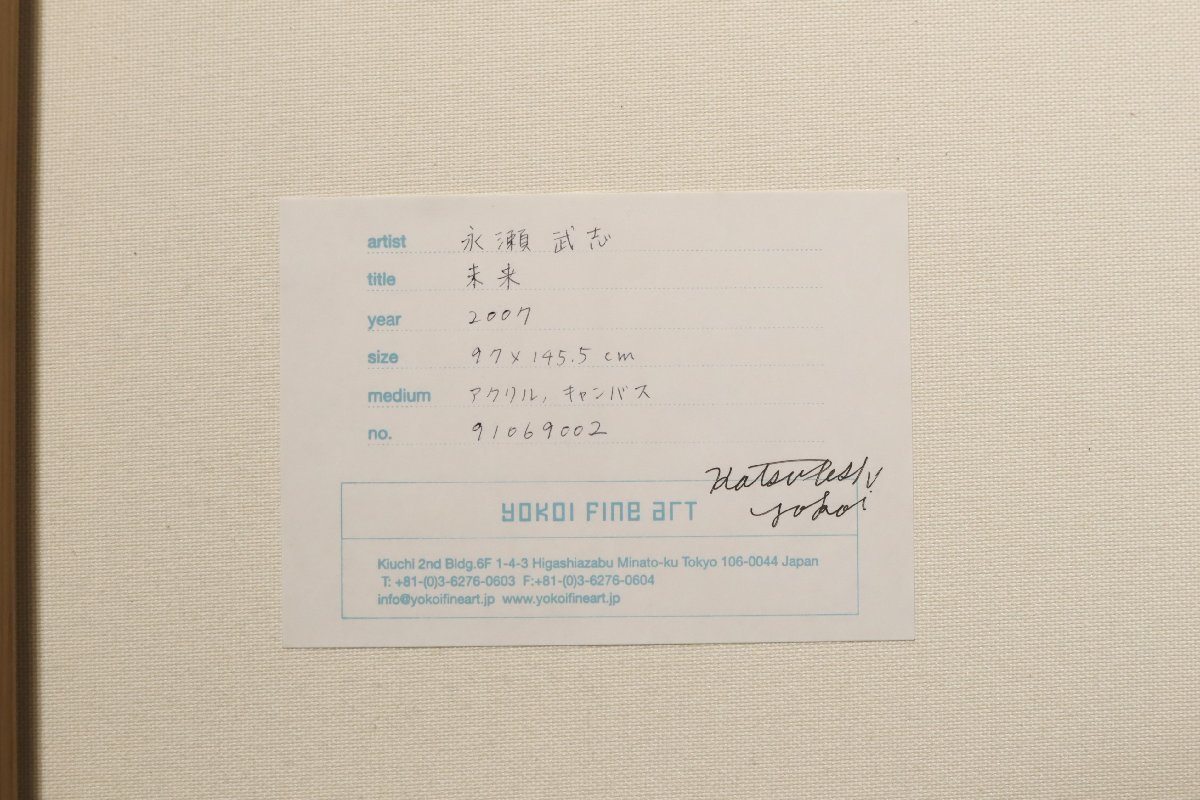 artist 永瀬 武志
title 未来
year 2007
size 97×145.5 cm
medium アクリル, キャンバス
no. 91069002
Katsutoshi
Yokoi
YOKOI FINE ART
Kiuchi 2nd Bldg.6F 1-4-3 Higashiazabu Minato-ku Tokyo 106-0044 Japan
T: +81-(0)3-6276-0603 F:+81-(0)3-6276-0604
info@yokoifineart.jp www.yokoifineart.jp